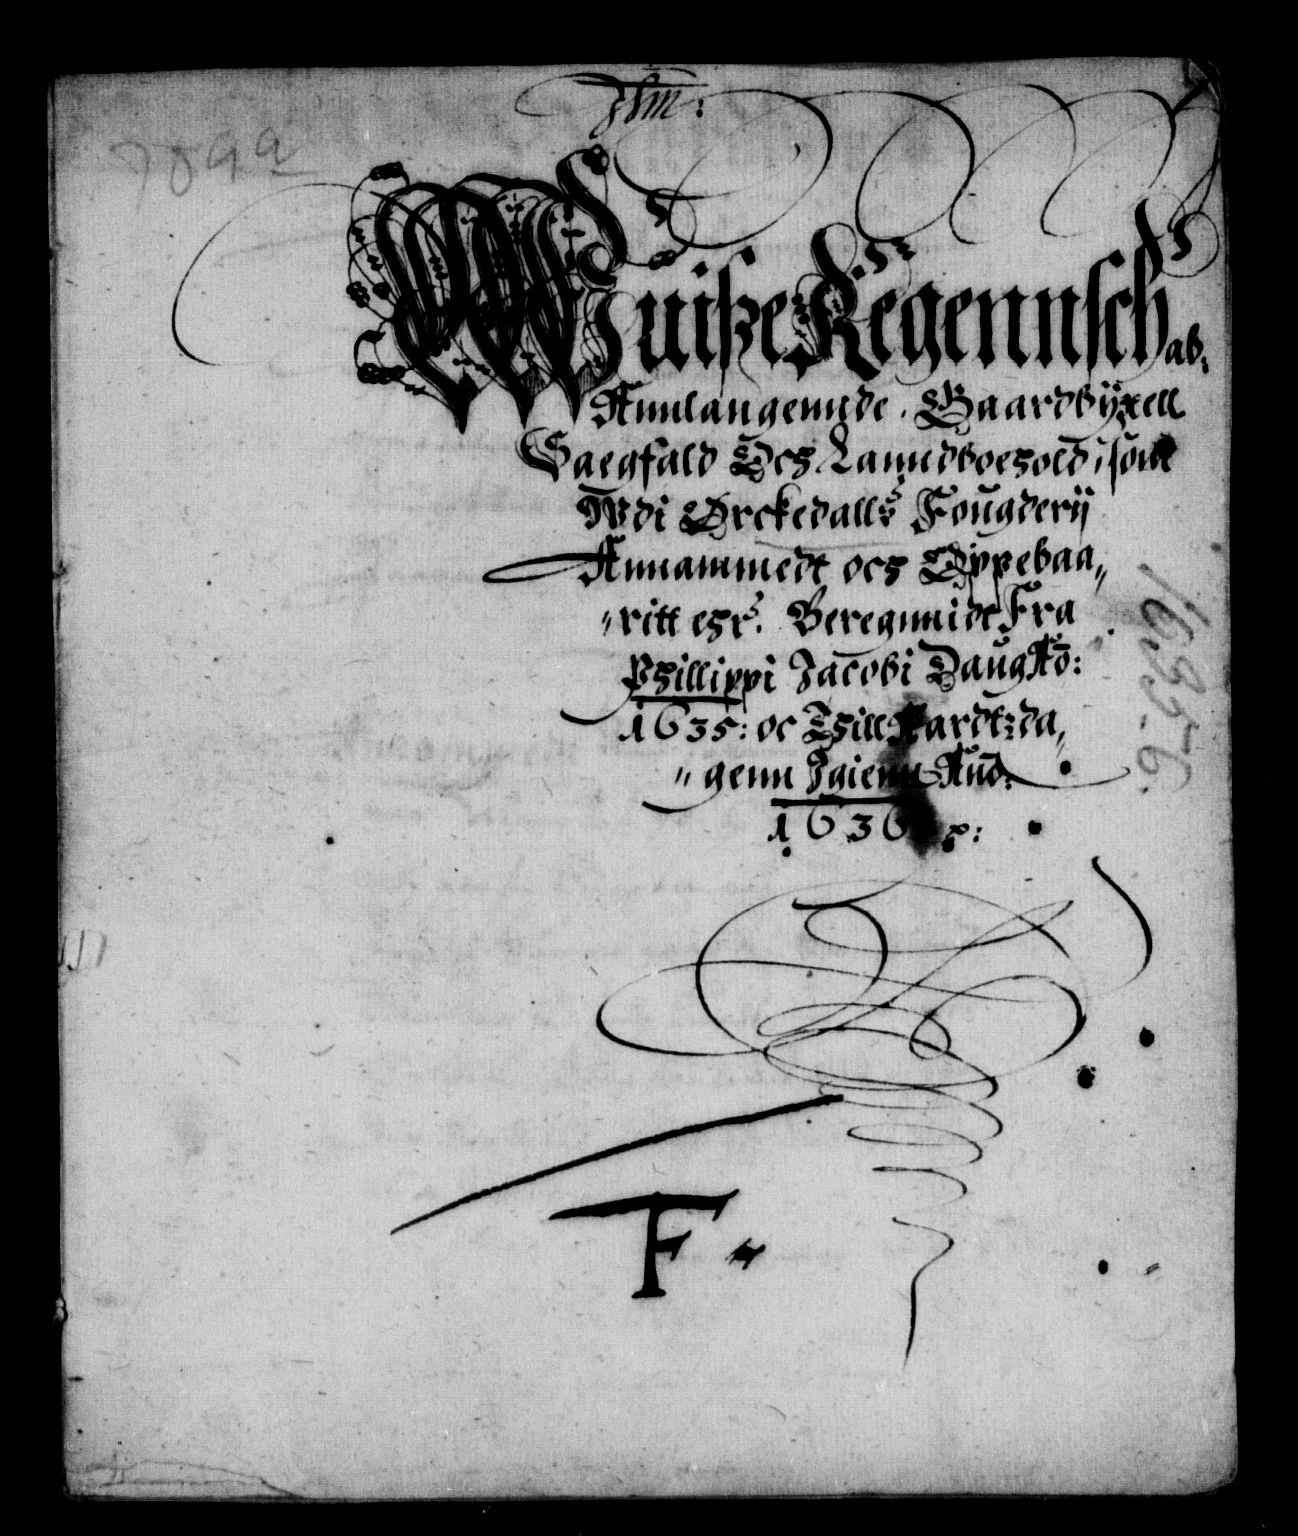 Wuisze Regennschab:
Annlangennde. Gaardbÿxell
Saegfald Och Lanndboehold, som
Wdi Ørckedalls Fougderij
Annammedt och Oppebaa„
„ritt ehr. Beregnnidt Fra
Phillippi Jacobi Daug Aō:
1635: oc Thill Aardtzda„
„genn Igienn Anō:
1636
F
7099
1635-6.